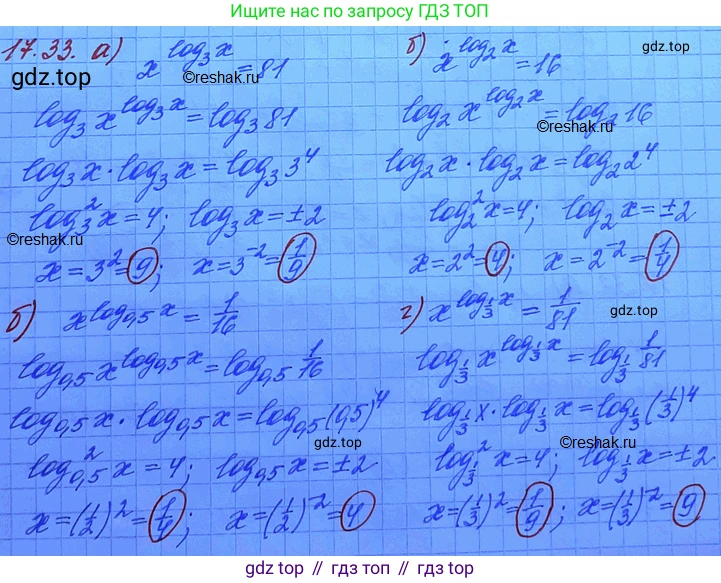 Ищите нас по запросу ГДЗ ТОП
17.33. а) x^(log₃x) = 81
gdz.top
©reshak.ru
log₃ x^(log₃x) = log₃ 81
log₃ x · log₃ x = log₃ 3⁴
log₃² x = 4; log₃ x = ±2
©reshak.ru
x = 3² = 9; x = 3⁻² = 1/9
б) x^(log₂x) = 16
gdz.top
log₂ x^(log₂x) = log₂ 16
©reshak.ru
log₂ x · log₂ x = log₂ 2⁴
log₂² x = 4; log₂ x = ±2
x = 2² = 4; x = 2⁻² = 1/4
б) x^(log₀,₅ x) = 1/16
log₀,₅ x^(log₀,₅ x) = log₀,₅ 1/16
log₀,₅ x · log₀,₅ x = log₀,₅ (0,5)⁴
gdz.top
log₀,₅² x = 4; log₀,₅ x = ±2
x = (1/2)² = 1/4; x = (1/2)⁻² = 4
г) x^(log_(1/3) x) = 1/81
gdz.top
log_(1/3) x^(log_(1/3) x) = log_(1/3) 1/81
log_(1/3) x · log_(1/3) x = log_(1/3) (1/3)⁴
©reshak.ru
log_(1/3)² x = 4; log_(1/3) x = ±2
x = (1/3)² = 1/9; x = (1/3)⁻² = 9
gdz.top // гдз.топ // gdz.top